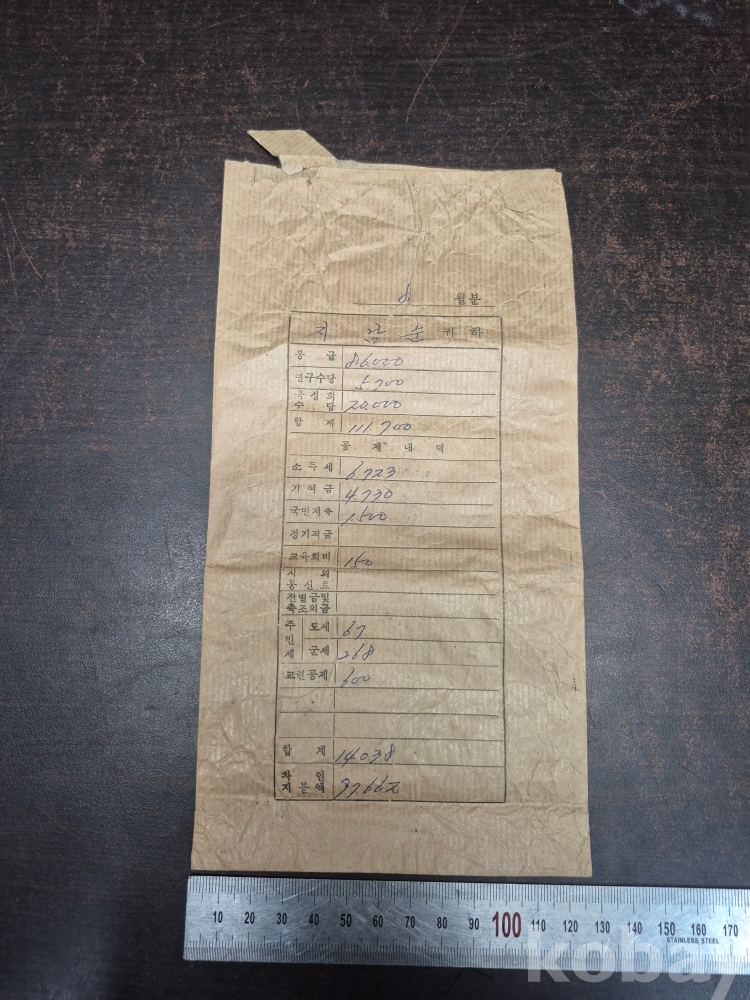 8 월분
지 갑 순 귀하
봉 급 86.000
연구수당 5.700
육성회 수당 20.000
합 계 111.700
공 제 내 역
소득세 6.723
기여금 4.730
국민저축 1.500
정기적금
교육회비 150
시외 통신료
전별금및 축조의금
주민세 도세 67
군세 268
교련공제 600
합 계 14.038
차인 지불액 97.662
10 20 30 40 50 60 70 80 90 100 110 120 130 140 150 160 170
STAINLESS STEEL
kobay